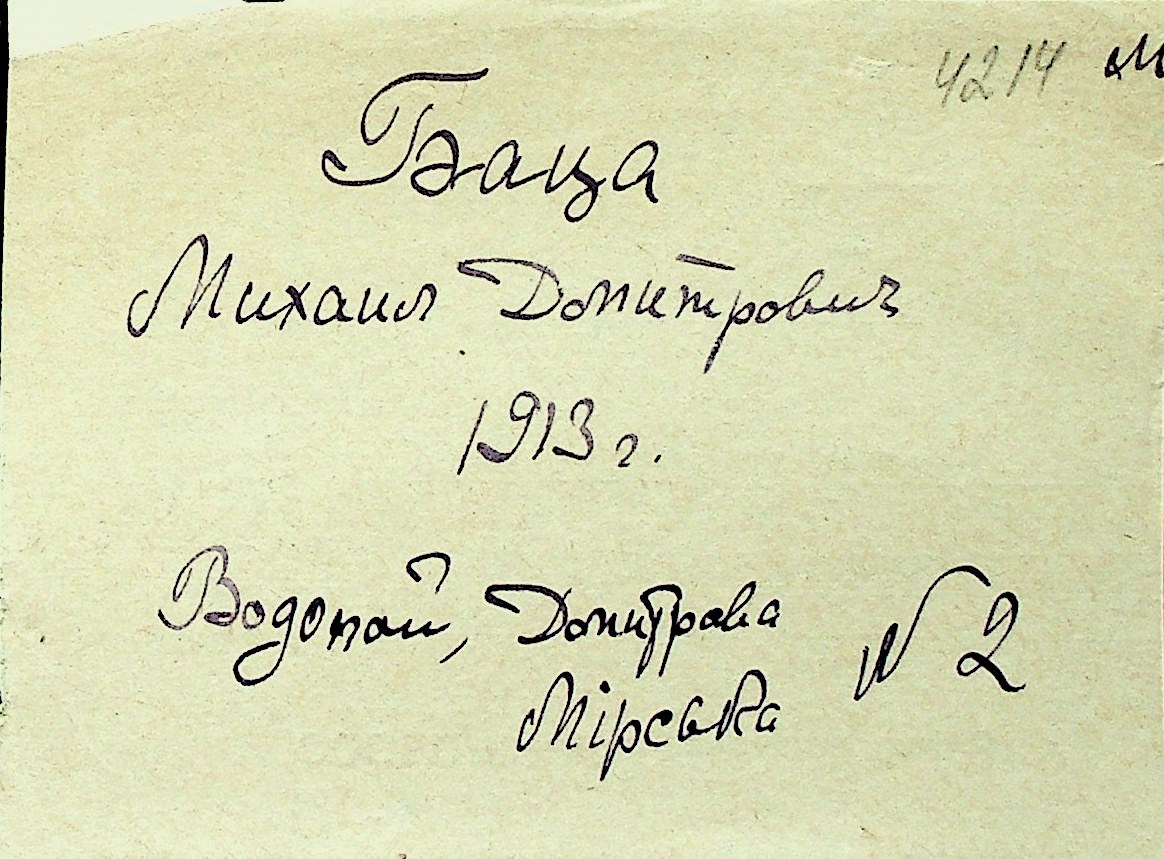 4214 М
Баца
Михаил Дмитрович
1913 г.
Водопой,
Мірська № 2